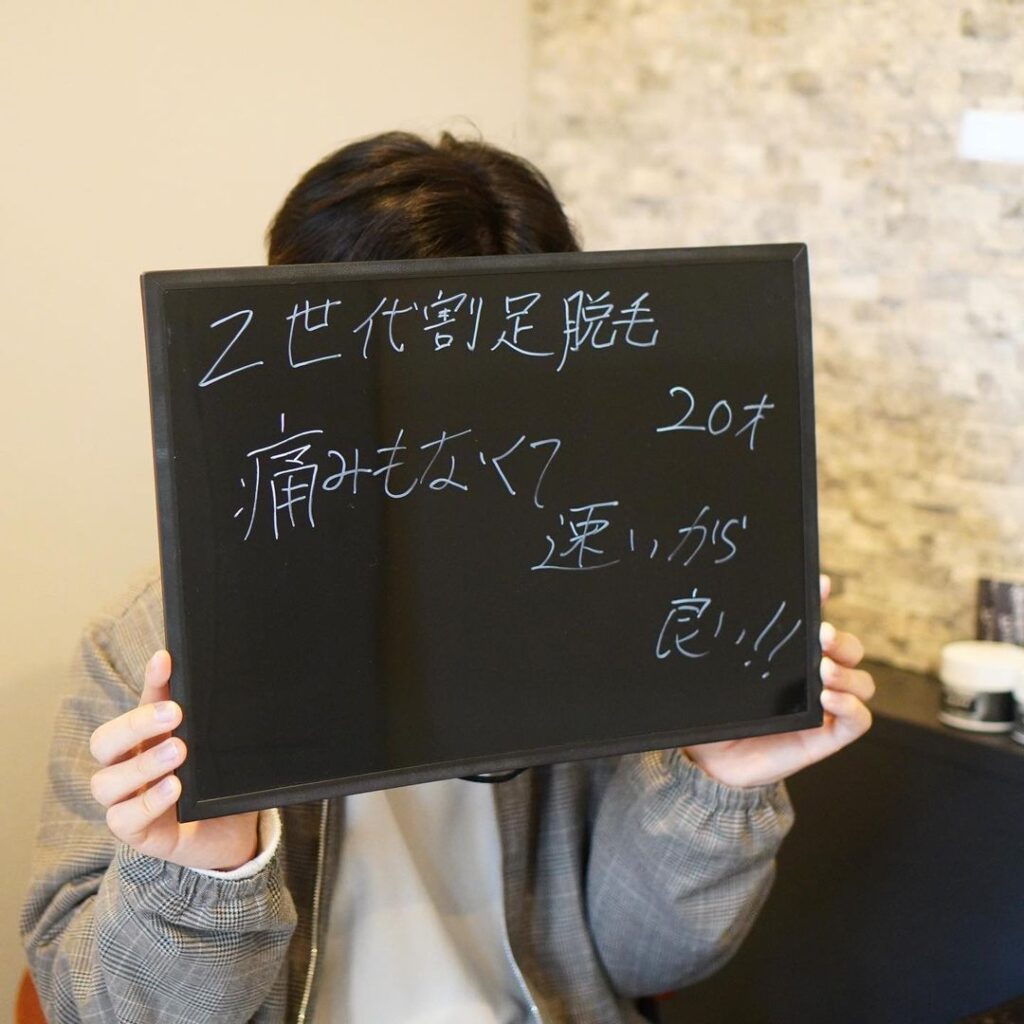 Z世代割足脱毛
20才
痛みもなくて
速いが
良い!!